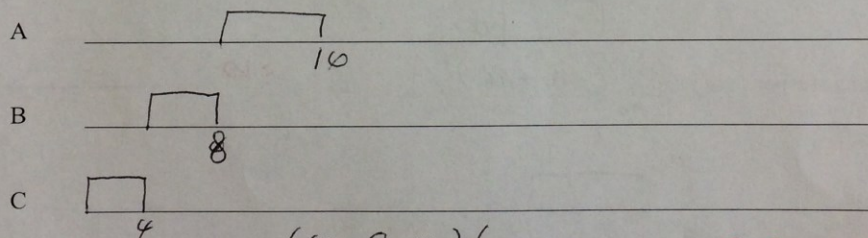 A
16
B
8
C
4